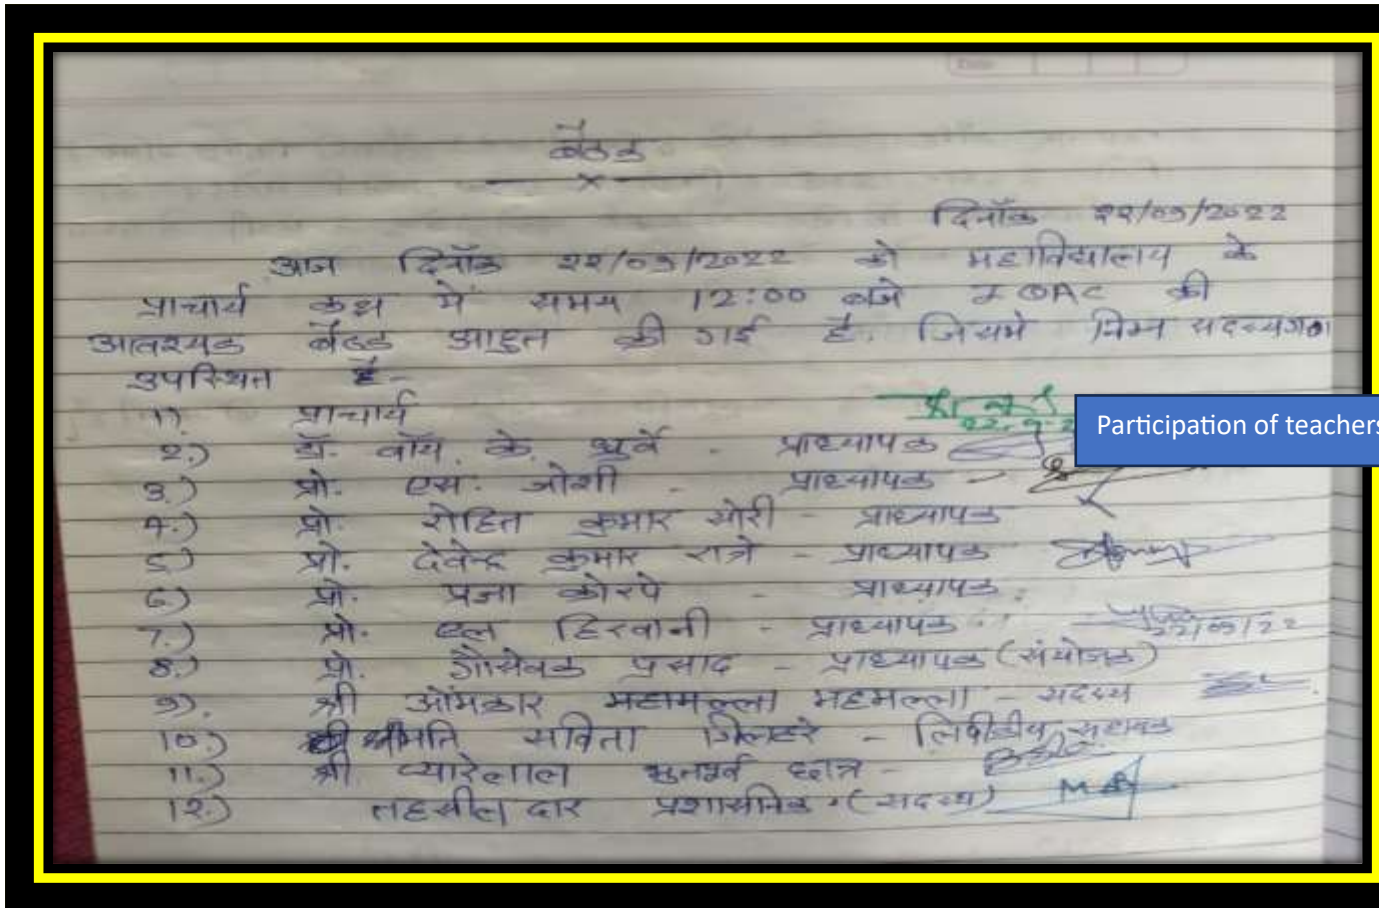 बैठक
x
दिनाँक 22/09/2022
आज दिनाँक 22/09/2022 को महाविद्यालय के
प्राचार्य कक्ष में समय 12:00 बजे IQAC की
आवश्यक बैठक आहुत की गई है. जिसमे निम्न सदस्यगण
उपस्थित है-
1) प्राचार्य
2.) डॉ. वॉय. के. धुर्वे - प्राध्यापक
3.) प्रो. एस. जोशी - प्राध्यापक
4.) प्रो. रोहित कुमार सोरी - प्राध्यापक
5) प्रो. देवेन्द्र कुमार रात्रे - प्राध्यापक
6) प्रो. प्रज्ञा कोरपे - प्राध्यापक
7.) प्रो. एल हिरवानी - प्राध्यापक 22/09/22
8.) प्रो. गौसेवक प्रसाद - प्राध्यापक (संयोजक)
9). श्री ओमकार महामल्ला महमल्ला - सदस्य
10.) श्रीमति सविता गिलहरे - सहायक
11.) श्री प्यारेलाल भुतपूर्व छात्र -
12.) तहसीलदार प्रशासनिक (सदस्य)
Participation of teachers